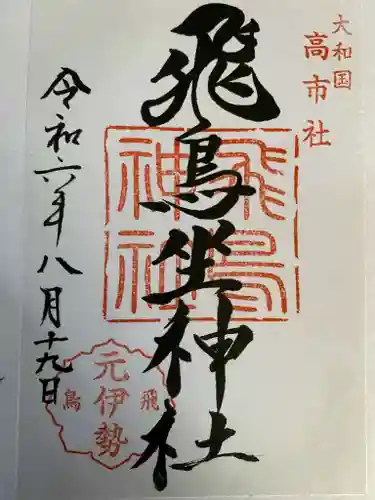 大和国
高市社
飛鳥坐神社
飛鳥
神社
令和六年八月十九日
元伊勢
飛
鳥